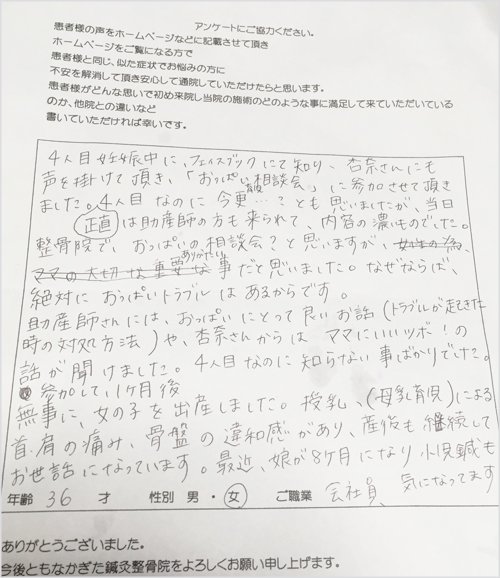 アンケートにご協力ください。
患者様の声をホームページなどに記載させて頂き
ホームページをご覧になる方で
患者様と同じ、似た症状でお悩みの方に
不安を解消して頂き安心して通院していただけたらと思います。
患者様がどんな思いで初め来院し当院の施術のどのような事に満足して来ていただいている
のか、他院との違いなど
書いていただければ幸いです。
4人目妊娠中に、フェイスブックにて知り、杏奈さんにも
声を掛けて頂き、「おっぱい相談会」に参加させて頂き
ました。4人目なのに今更…?とも思いましたが、当日
正直
は助産師の方も来られて、内容の濃いものでした。
整骨院で、おっぱいの相談会?と思いますが、女性の為、
ありがたい
ママの大切な重要な事だと思いました。なぜならば、
絶対におっぱいトラブルはあるからです。
助産師さんには、おっぱいにとって良いお話(トラブルが起きた
時の対処方法)や、杏奈さんからはママにいいツボ!の
話が聞けました。4人目なのに知らない事ばかりでした。
参加して、1ヶ月後
無事に、女の子を出産しました。授乳、(母乳育児)による
首・肩の痛み、骨盤の違和感があり、産後も継続して
お世話になっています。最近、娘が8ヶ月になり小児鍼も
気になってます
年齢 36 才 性別 男・女 ご職業 会社員
ありがとうございました。
今後ともなかぎた鍼灸整骨院をよろしくお願い申し上げます。